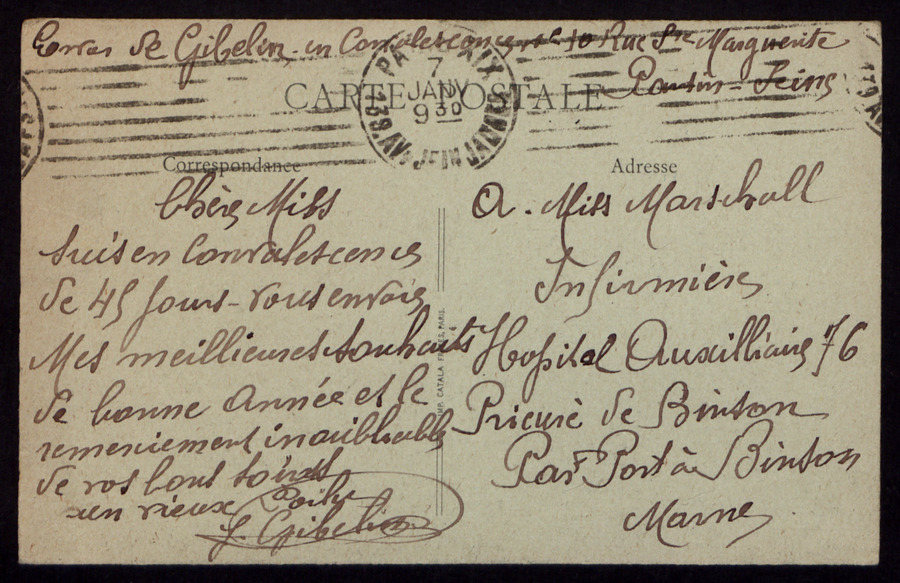 Envoi de Gibelin en Convalescence 10 Rue Ste Marguerite
Pantin = Seine
7
JANV
9 30
139.AV. JEAN JAURÈS
CARTE POSTALE
Correspondance
Chère Miss
Suis en Convalescence
de 45 Jours - vous envoie
Mes meillieures souhaits
de bonne Année et le
remerciement inoubliable
de vos bons soins
un vieux Poilu
J. Gibelin
IMP. CATALA FRÈRES, PARIS.
Adresse
A. Miss Marschall
Infirmière
Hopital Auxilliaire 76
Prieuré de Binson
Par Port à Binson
Marne